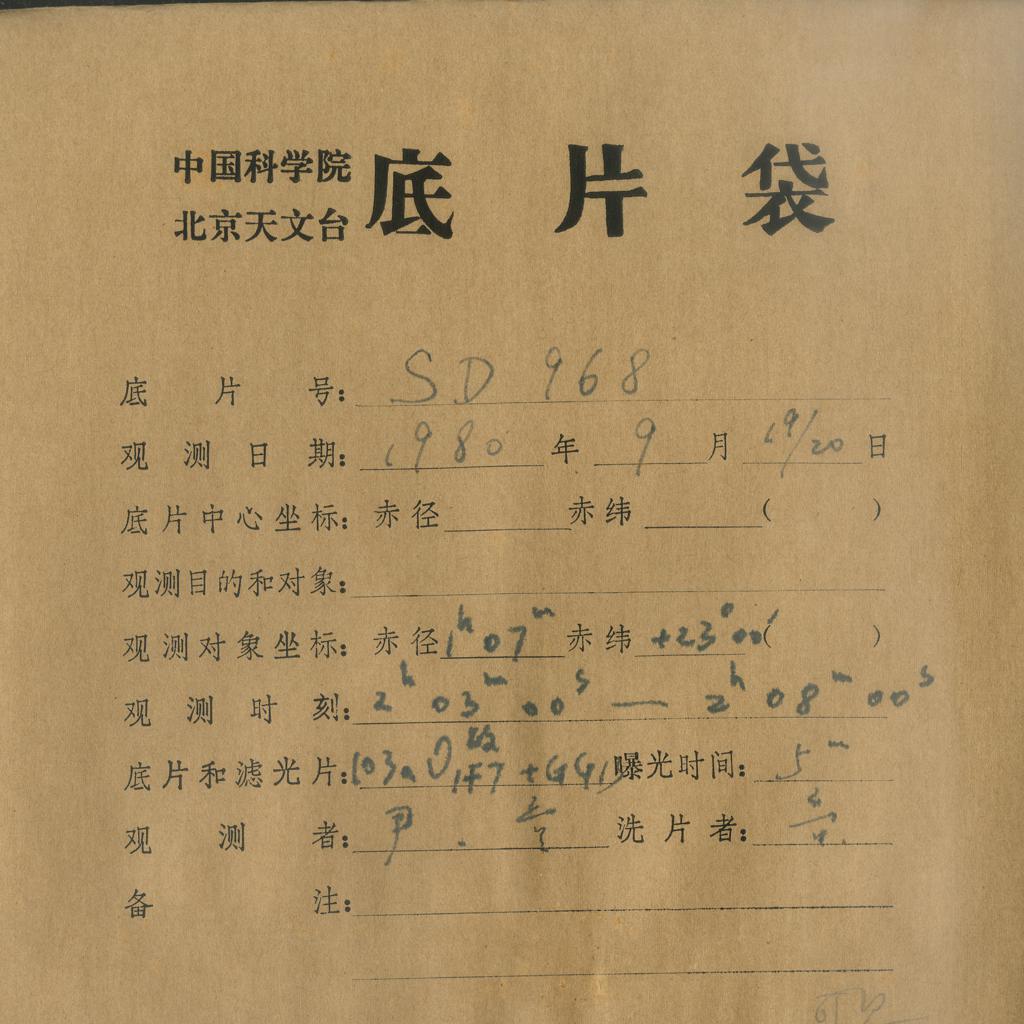 中国科学院
北京天文台
底片袋
底片号: SD 968
观测日期: 1980 年 9 月 19/20 日
底片中心坐标: 赤径 赤纬 ( )
观测目的和对象:
观测对象坐标: 赤径 1h 07m 赤纬 +23°00′ ( )
观测时刻: 2h 03m 00s — 2h 08m 00s
底片和滤光片: 103aO +GG1 曝光时间: 5m
观测者: 尹. 洗片者:
备注: